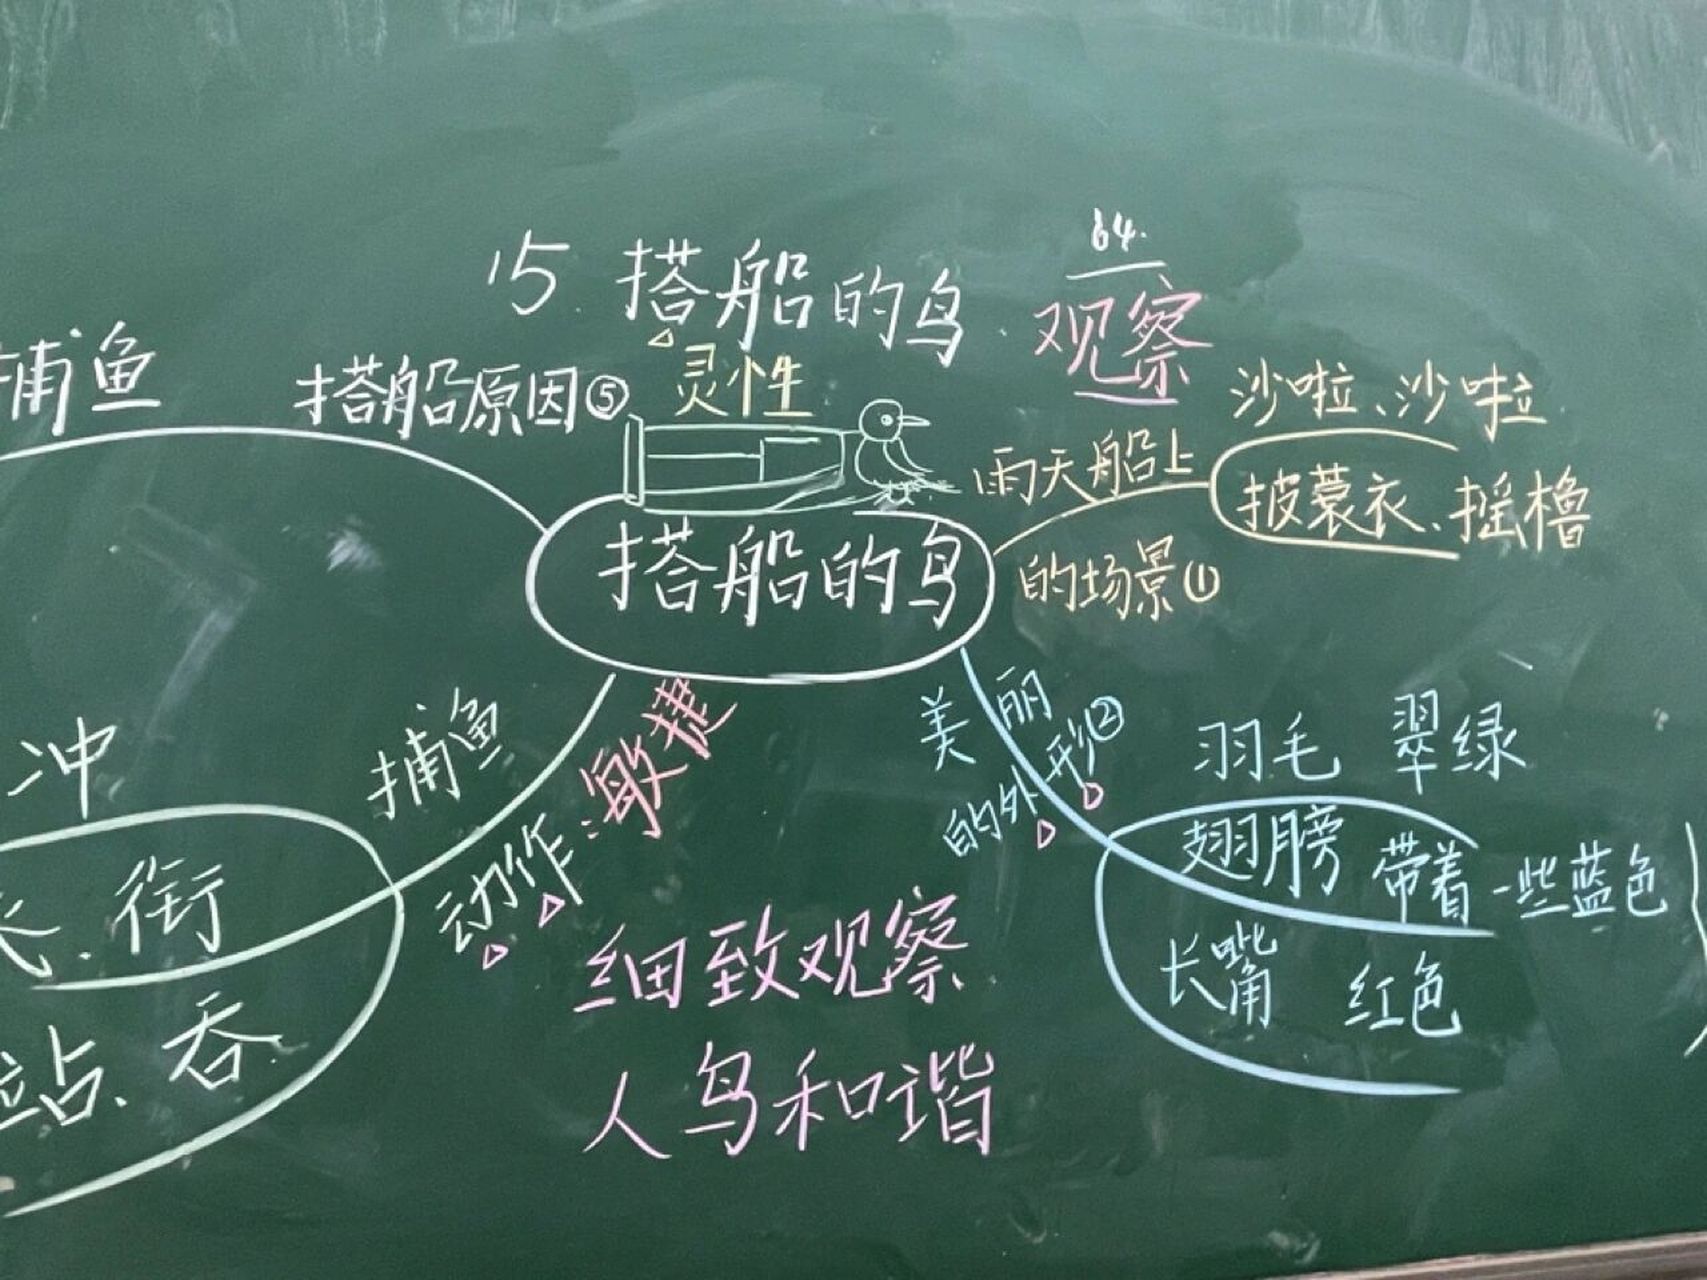 15. 搭船的鸟.
64.
观察
灵性
捕鱼
搭船原因⑤
搭船的鸟
雨天船上
的场景①
沙啦、沙啦
披蓑衣、摇橹
美丽
的外形②
羽毛 翠绿
翅膀 带着一些蓝色
长嘴 红色
捕鱼
动作:敏捷
冲
衔
站、吞
细致观察
人鸟和谐